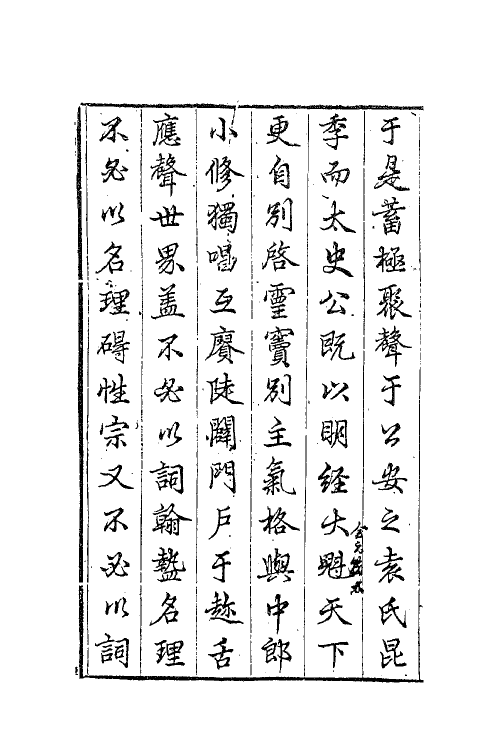 于是蓄極聚聲于公安之袁氏昆
季而太史公既以明經大魁天下
更自別啓靈竇別主氣格與中郎
小修獨唱互賡陡闢門戶于趂舌
應聲世界盖不必以詞翰蓺名理
不必以名理碍性宗又不必以詞